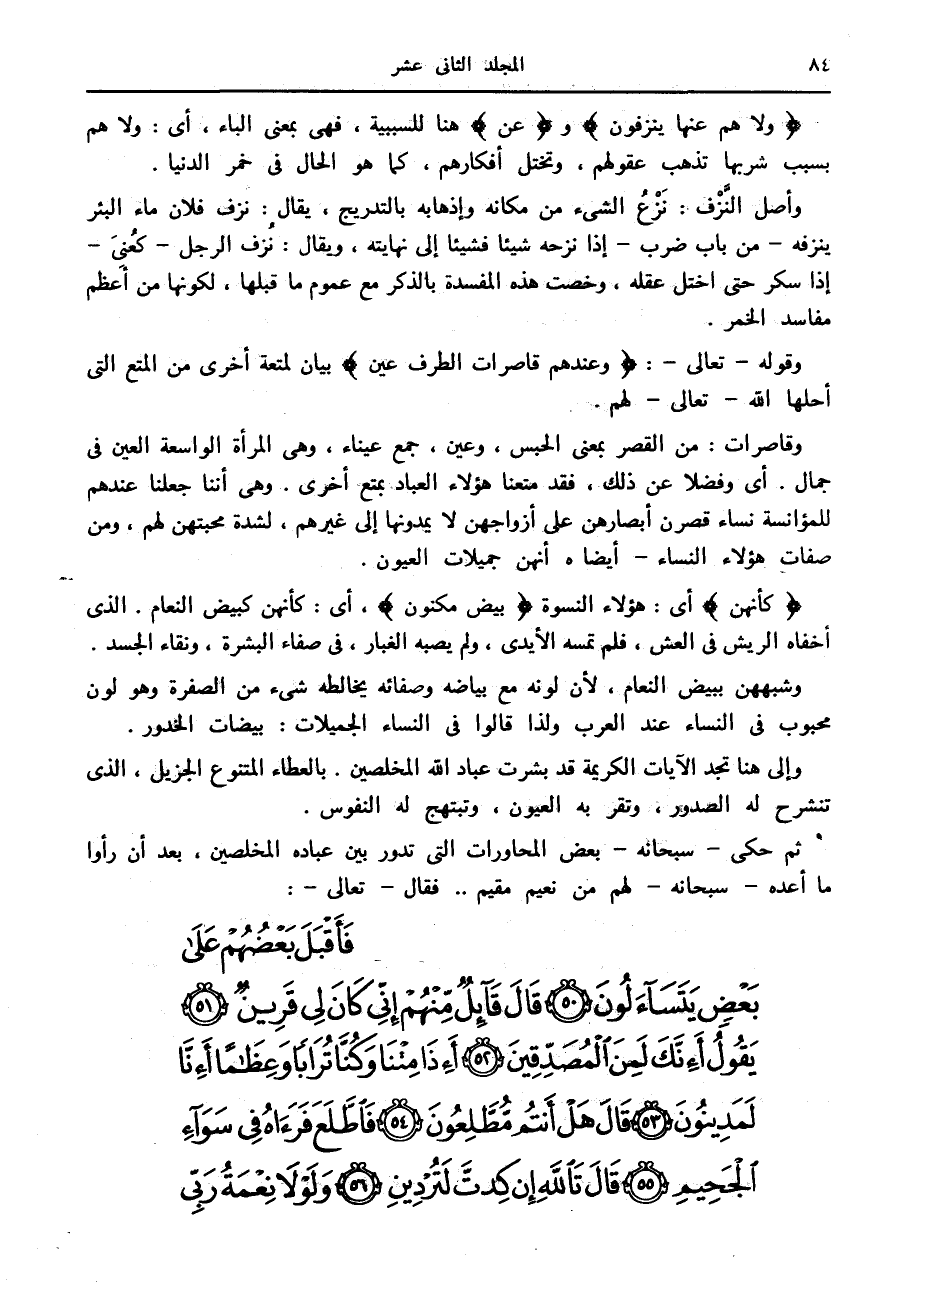 ٨٤
المجلد الثانى عشر
﴿ ولا هم عنها ينزفون ﴾ و ﴿ عن ﴾ هنا للسببية ، فهى بمعنى الباء ، أى : ولا هم
بسبب شربها تذهب عقولهم ، وتختل أفكارهم ، كما هو الحال فى خمر الدنيا .
وأصل النَّزْف : نَزْعُ الشىء من مكانه وإذهابه بالتدريج ، يقال : نزف فلان ماء البئر
ينزفه – من باب ضرب – إذا نزحه شيئا فشيئا إلى نهايته ، ويقال : نُزف الرجل – كعُنِىَ –
إذا سكر حتى اختل عقله ، وخصت هذه المفسدة بالذكر مع عموم ما قبلها ، لكونها من أعظم
مفاسد الخمر .
وقوله – تعالى – : ﴿ وعندهم قاصرات الطرف عين ﴾ بيان لمتعة أخرى من المتع التى
أحلها الله – تعالى – لهم .
وقاصرات : من القصر بمعنى الحبس ، وعين ، جمع عيناء ، وهى المرأة الواسعة العين فى
جمال . أى وفضلا عن ذلك ، فقد متعنا هؤلاء العباد بمتع أخرى . وهى أننا جعلنا عندهم
للمؤانسة نساء قصرن أبصارهن على أزواجهن لا يمدونها إلى غيرهم ، لشدة محبتهن لهم ، ومن
صفات هؤلاء النساء – أيضا ه أنهن جميلات العيون .
﴿ كأنهن ﴾ أى : هؤلاء النسوة ﴿ بيض مكنون ﴾ ، أى : كأنهن كبيض النعام . الذى
أخفاه الريش فى العش ، فلم تمسه الأيدى ، ولم يصبه الغبار ، فى صفاء البشرة ، ونقاء الجسد .
وشبههن ببيض النعام ، لأن لونه مع بياضه وصفائه يخالطه شىء من الصفرة وهو لون
محبوب فى النساء عند العرب ولذا قالوا فى النساء الجميلات : بيضات الخدور .
وإلى هنا تجد الآيات الكريمة قد بشرت عباد الله المخلصين . بالعطاء المتنوع الجزيل ، الذى
تنشرح له الصدور ، وتقر به العيون ، وتبتهج له النفوس .
ثم حكى – سبحانه – بعض المحاورات التى تدور بين عباده المخلصين ، بعد أن رأوا
ما أعده – سبحانه – لهم من نعيم مقيم .. فقال – تعالى – :
فَأَقْبَلَ بَعْضُهُمْ عَلَىٰ
بَعْضٍ يَتَسَآءَلُونَ ۝٥٠ قَالَ قَآئِلٌ مِّنْهُمْ إِنِّى كَانَ لِى قَرِينٌ ۝٥١
يَقُولُ أَءِنَّكَ لَمِنَ ٱلْمُصَدِّقِينَ ۝٥٢ أَءِذَا مِتْنَا وَكُنَّا تُرَابًا وَعِظَٰمًا أَءِنَّا
لَمَدِينُونَ ۝٥٣ قَالَ هَلْ أَنتُم مُّطَّلِعُونَ ۝٥٤ فَٱطَّلَعَ فَرَءَاهُ فِى سَوَآءِ
ٱلْجَحِيمِ ۝٥٥ قَالَ تَٱللَّهِ إِن كِدتَّ لَتُرْدِينِ ۝٥٦ وَلَوْلَا نِعْمَةُ رَبِّى